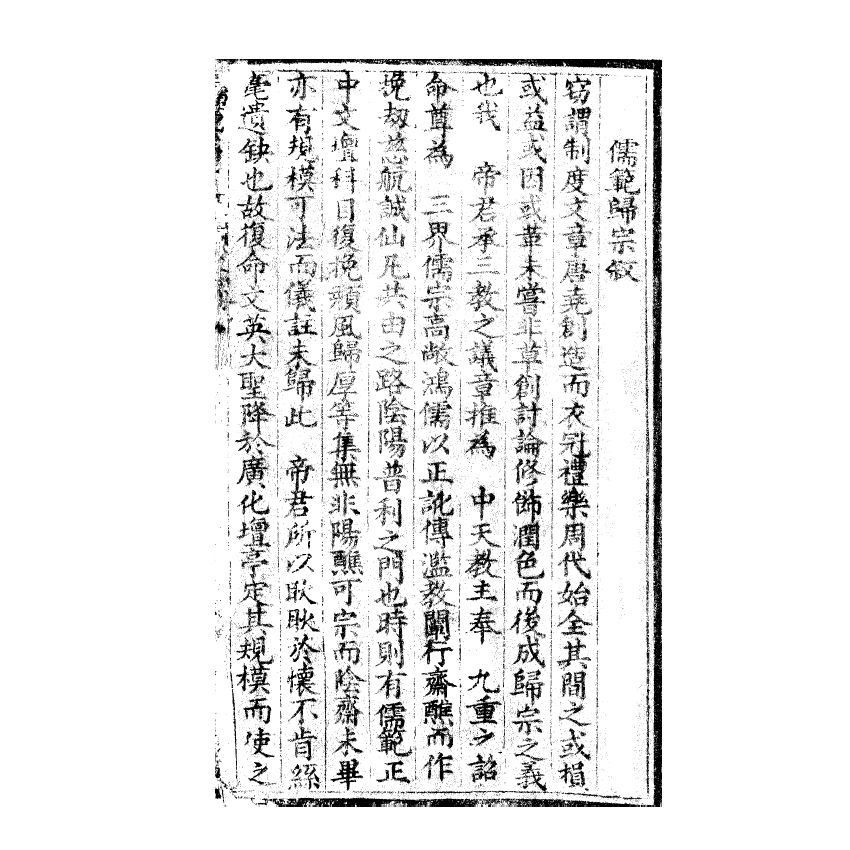 儒範歸宗敘
窃謂制度文章唐堯創造而衣冠禮樂周代始全其間之或損
或益或因或革未嘗非草創討論修飾潤色而後成歸宗之義
也我　帝君承三教之議章推為　中天教主奉　九重之詔
命尊為　三界儒宗高敞鴻儒以正訛傳濫教闡行齋醮而作
挽劫慈航誠仙凡共由之路陰陽普利之門也時則有儒範正
中文壇科目復挽頹風歸厚等集無非陽醮可宗而陰齋未畢
亦有規模可法而儀註未歸此　帝君所以耿耿於懷不肯絲
毫遺缺也故復命文英大聖降於廣化增亭定其規模而使之